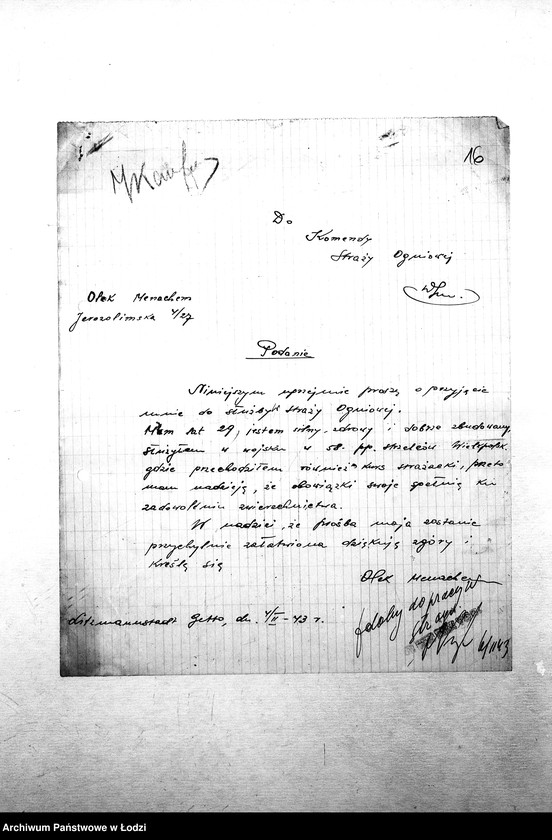 16
Do
Komendy
Straży Ogniowej
Olek Menachem
Jerozolimska 4/27
Podanie
Niniejszym uprzejmie proszę o przyjęcie
mnie do służby Straży Ogniowej.
Mam lat 29, jestem silny, zdrowy i dobrze zbudowany,
służyłem w wojsku w 58. pp. strzelców Wielkpolk.
gdzie przechodziłem również kurs strażacki, przeto
mam nadzieję, że obowiązki swoje spełnię ku
zadowoleniu zwierzchnictwa.
W nadziei, że prośba moja zostanie
przychylnie załatwiona dziękuję zgóry i
kreślę się
Olek Menachem
Litzmannstadt Getto, dn. 4/II - 43 r.
zdolny do pracy w
6/II 43
Archiwum Państwowe w Łodzi